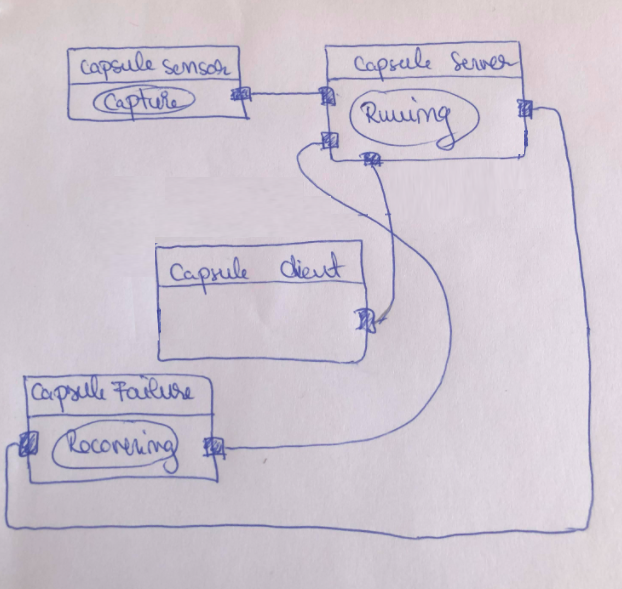 Capsule Sensor
Capture
Capsule Server
Running
Capsule Client
Capsule Failure
Rocovering